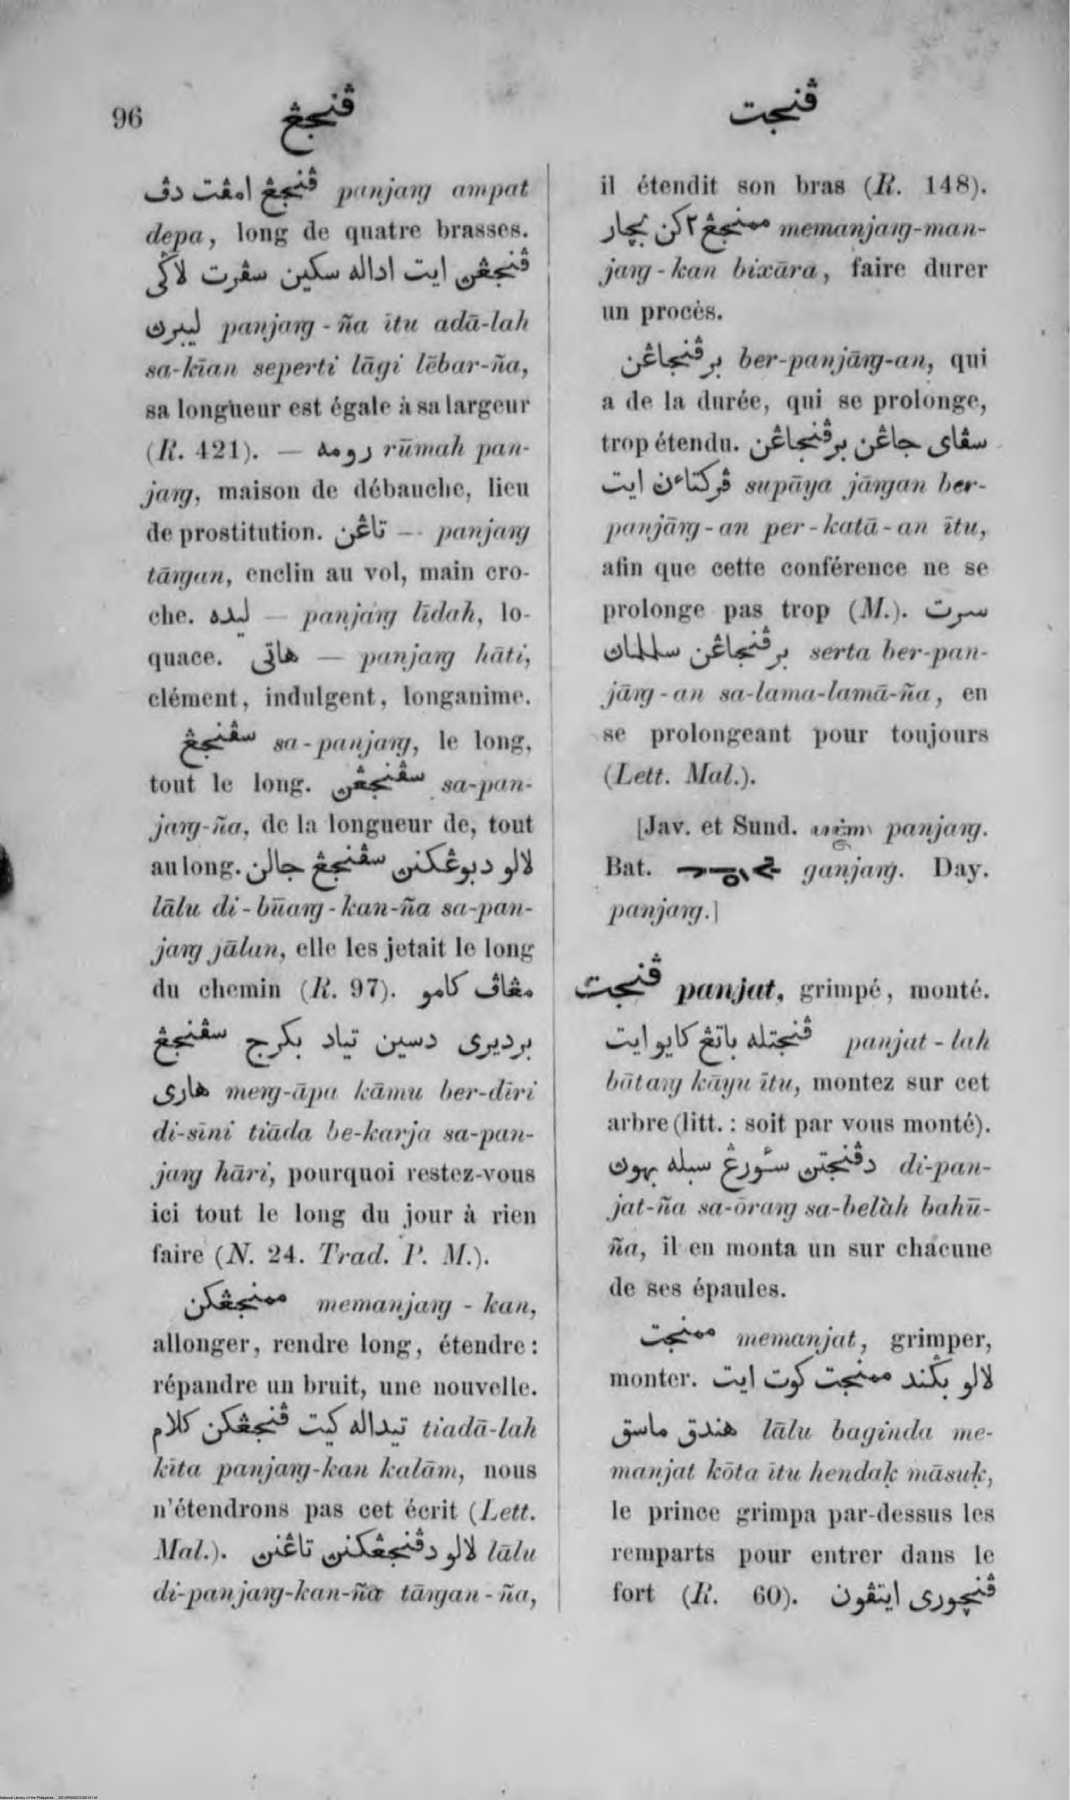 96
ڤنجڠ
ڤنجت
ڤنجڠ امڤت دڤ panjaṅg ampat
depa, long de quatre brasses.
ڤنجڠن ايت اداله سكين سڤرت لاݢي
ليبرن panjaṅg-ña ītu adā-lah
sa-kīan seperti lāgi lēbar-ña,
sa longueur est égale à sa largeur
(R. 421). — رومه rūmah pan-
jaṅg, maison de débauche, lieu
de prostitution. تاڠن — panjaṅg
tāṅgan, enclin au vol, main cro-
che. ليده — panjaṅg līdah, lo-
quace. هاتي — panjaṅg hāti,
clément, indulgent, longanime.
سڤنجڠ sa-panjaṅg, le long,
tout le long. سڤنجڠن sa-pan-
jaṅg-ña, de la longueur de, tout
au long. لالو دبوڠكنن سڤنجڠ جالن
lālu di-būaṅg-kan-ña sa-pan-
jaṅg jālan, elle les jetait le long
du chemin (R. 97). مڠاڤ كامو
برديري دسين تياد بكرج سڤنجڠ
هاري meṅg-āpa kāmu ber-dīri
di-sīni tiāda be-karja sa-pan-
jaṅg hāri, pourquoi restez-vous
ici tout le long du jour à rien
faire (N. 24. Trad. P. M.).
ممنجڠكن memanjaṅg-kan,
allonger, rendre long, étendre:
répandre un bruit, une nouvelle.
تيداله كيت ڤنجڠكن كلام tiadā-lah
kīta panjaṅg-kan kalām, nous
n'étendrons pas cet écrit (Lett.
Mal.). لالو دڤنجڠكنن تاڠنن lālu
di-panjaṅg-kan-ña tāṅgan-ña,
il étendit son bras (R. 148).
ممنجڠ٢كن بچار memanjaṅg-man-
jaṅg-kan bixāra, faire durer
un procès.
برڤنجاڠن ber-panjāṅg-an, qui
a de la durée, qui se prolonge,
trop étendu. سڤاي جاڠن برڤنجاڠن
ڤركتاءن ايت supāya jāṅgan ber-
panjāṅg-an per-katā-an ītu,
afin que cette conférence ne se
prolonge pas trop (M.). سرت
برڤنجاڠن سللمان serta ber-pan-
jāṅg-an sa-lama-lamā-ña, en
se prolongeant pour toujours
(Lett. Mal.).
[Jav. et Sund. panjaṅg.
Bat. ganjaṅg. Day.
panjaṅg.]
ڤنجت panjat, grimpé, monté.
ڤنجتله باتڠ كايو ايت panjat-lah
bātaṅg kāyu ītu, montez sur cet
arbre (litt.: soit par vous monté).
دڤنجتن سئورڠ سبله بهون di-pan-
jat-ña sa-ōraṅg sa-belàh bahū-
ña, il en monta un sur chacune
de ses épaules.
ممنجت memanjat, grimper,
monter. لالو بݢند ممنجت كوت ايت
هندق ماسق lālu baginda me-
manjat kōta ītu hendaḳ māsuḳ,
le prince grimpa par-dessus les
remparts pour entrer dans le
fort (R. 60). ڤنچوري ايتڤون